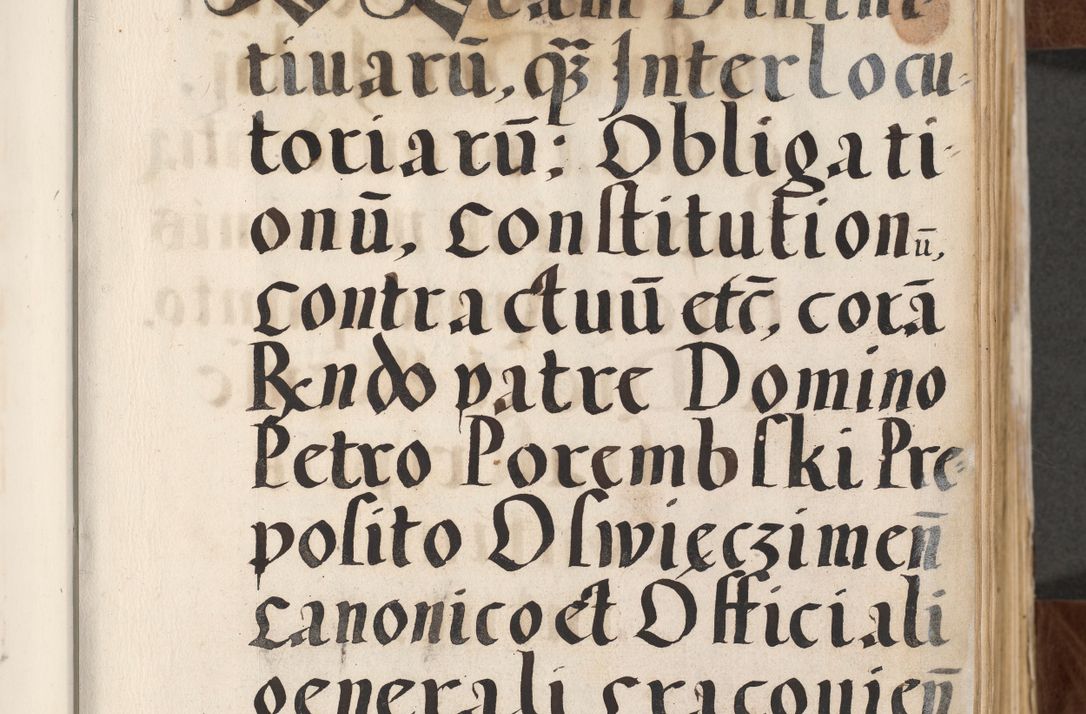 tiuarū, qȝ Interlocu-
toriarū: Obligati-
onū, Constitutionū,
contractuū etc̄, corā
Rndo patre Domino
Petro Porembski Pre-
posito Oswięczimen̄
Canonico et Officiali
generali Cracouien̄